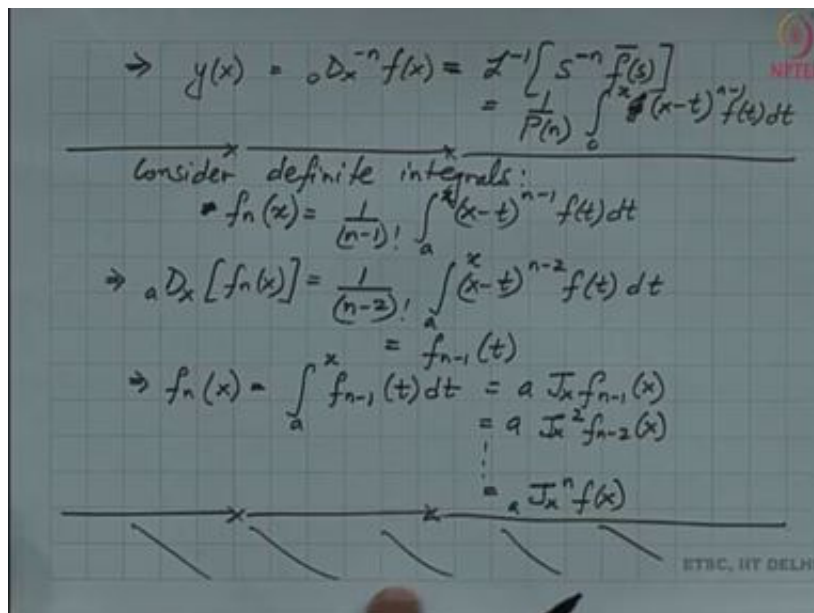 ⇒ y(x) = ₀Dₓ⁻ⁿ f(x) = ℒ⁻¹[s⁻ⁿ f̄(s)]
= 1/Γ(n) ∫₀ˣ (x-t)ⁿ⁻¹ f(t) dt
Consider definite integrals:
fₙ(x) = 1/(n-1)! ∫ₐˣ (x-t)ⁿ⁻¹ f(t) dt
⇒ ₐDₓ [fₙ(x)] = 1/(n-2)! ∫ₐˣ (x-t)ⁿ⁻² f(t) dt
= fₙ₋₁(t)
⇒ fₙ(x) = ∫ₐˣ fₙ₋₁(t) dt = a Jₓ fₙ₋₁(x)
= a Jₓ² fₙ₋₂(x)
= ₐJₓⁿ f(x)
NPTEL
ETSC, IIT DELHI